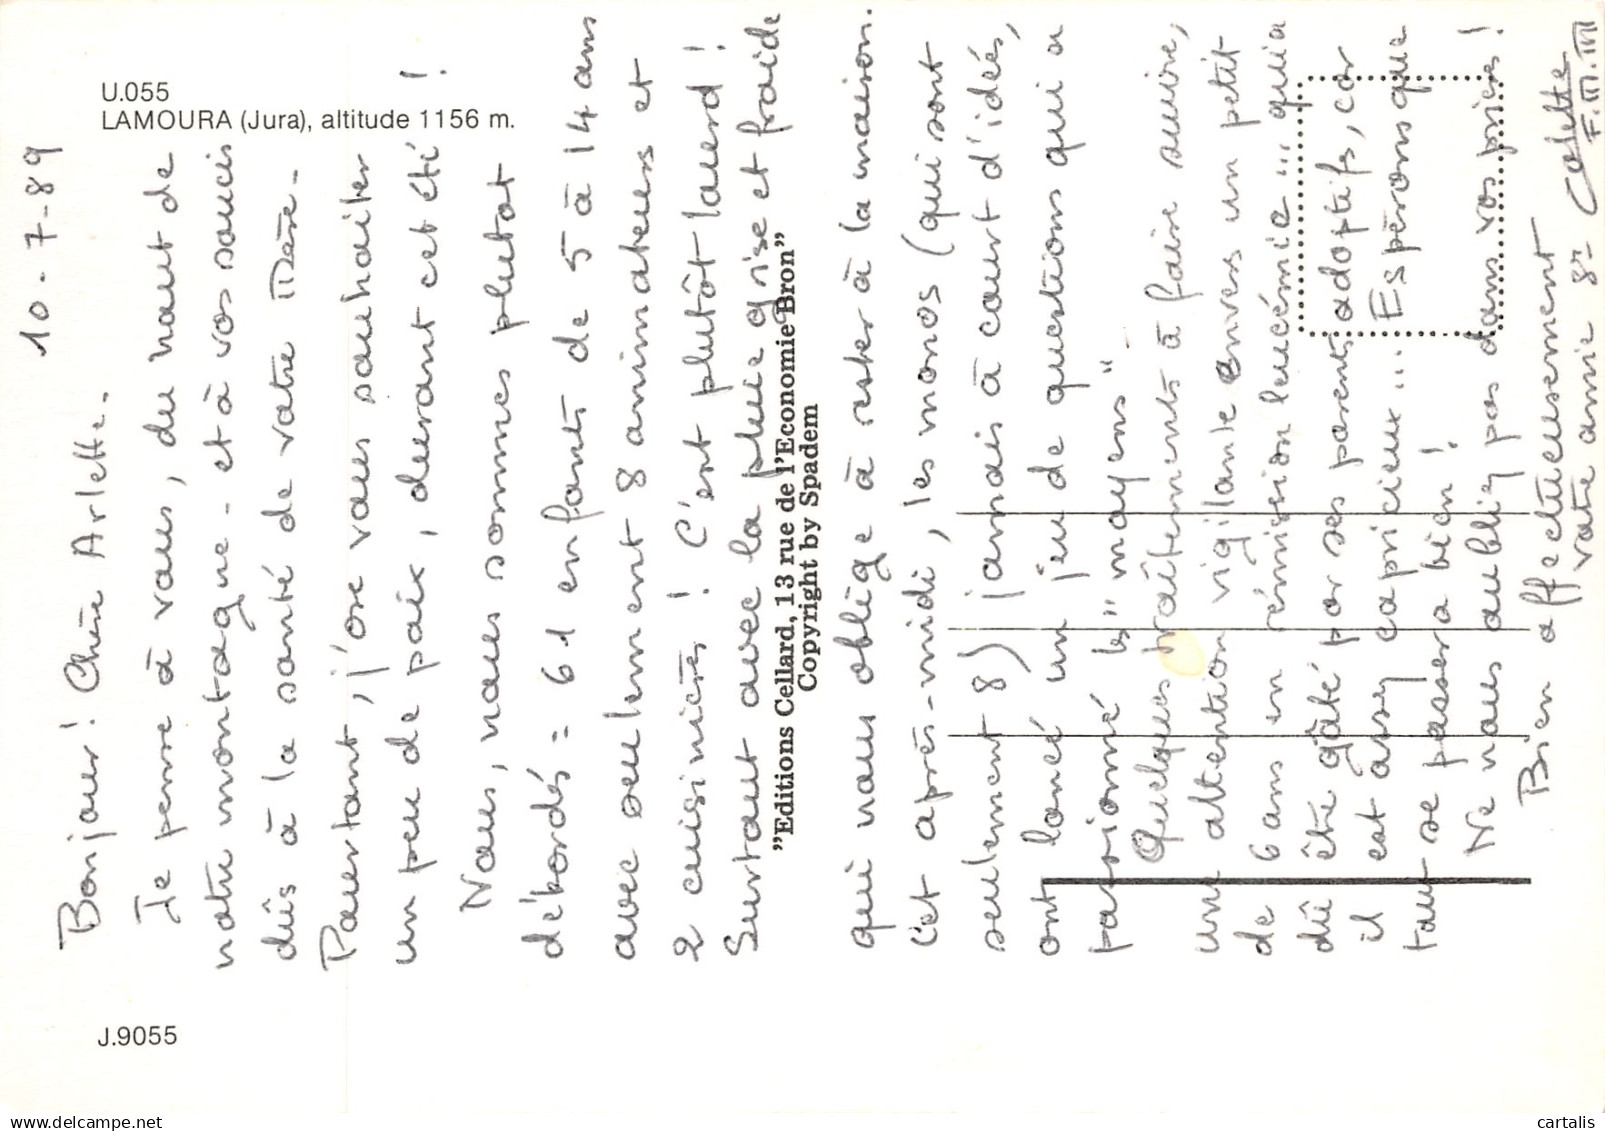 U.055
LAMOURA (Jura), altitude 1156 m.
J.9055
"Editions Cellard, 13 rue de l'Economie Bron"
Copyright by Spadem
10-7-89
Bonjour! Chère Arlette.
Je pense à vous, du haut de
notre montagne - et à vos soucis
dûs à la santé de votre Mère.
Pourtant, j'ose vous souhaiter
un peu de paix, durant cet été!
Nous, nous sommes plutôt
débordés = 61 enfants de 5 à 14 ans
avec seulement 8 animateurs et
2 cuisinières! C'est plutôt lourd!
Surtout avec la pluie grise et froide
qui nous oblige à rester à la maison.
Cet après-midi, les monos (qui sont
seulement 8) jamais à court d'idées,
ont lancé un jeu de questions qui a
passionné les "moyens".
Quelques traitements à faire suivre,
une attention vigilante envers un petit
de 6 ans en rémission leucémie... qui a
dû être gâté par ses parents adoptifs, car
il est assez capricieux... Espérons que
tout se passera bien!
Ne nous oubliez pas dans vos prières!
Bien affectueusement
votre amie Sr Colette
F.M.M
cartalis